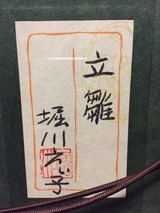 立雛
堀川え子